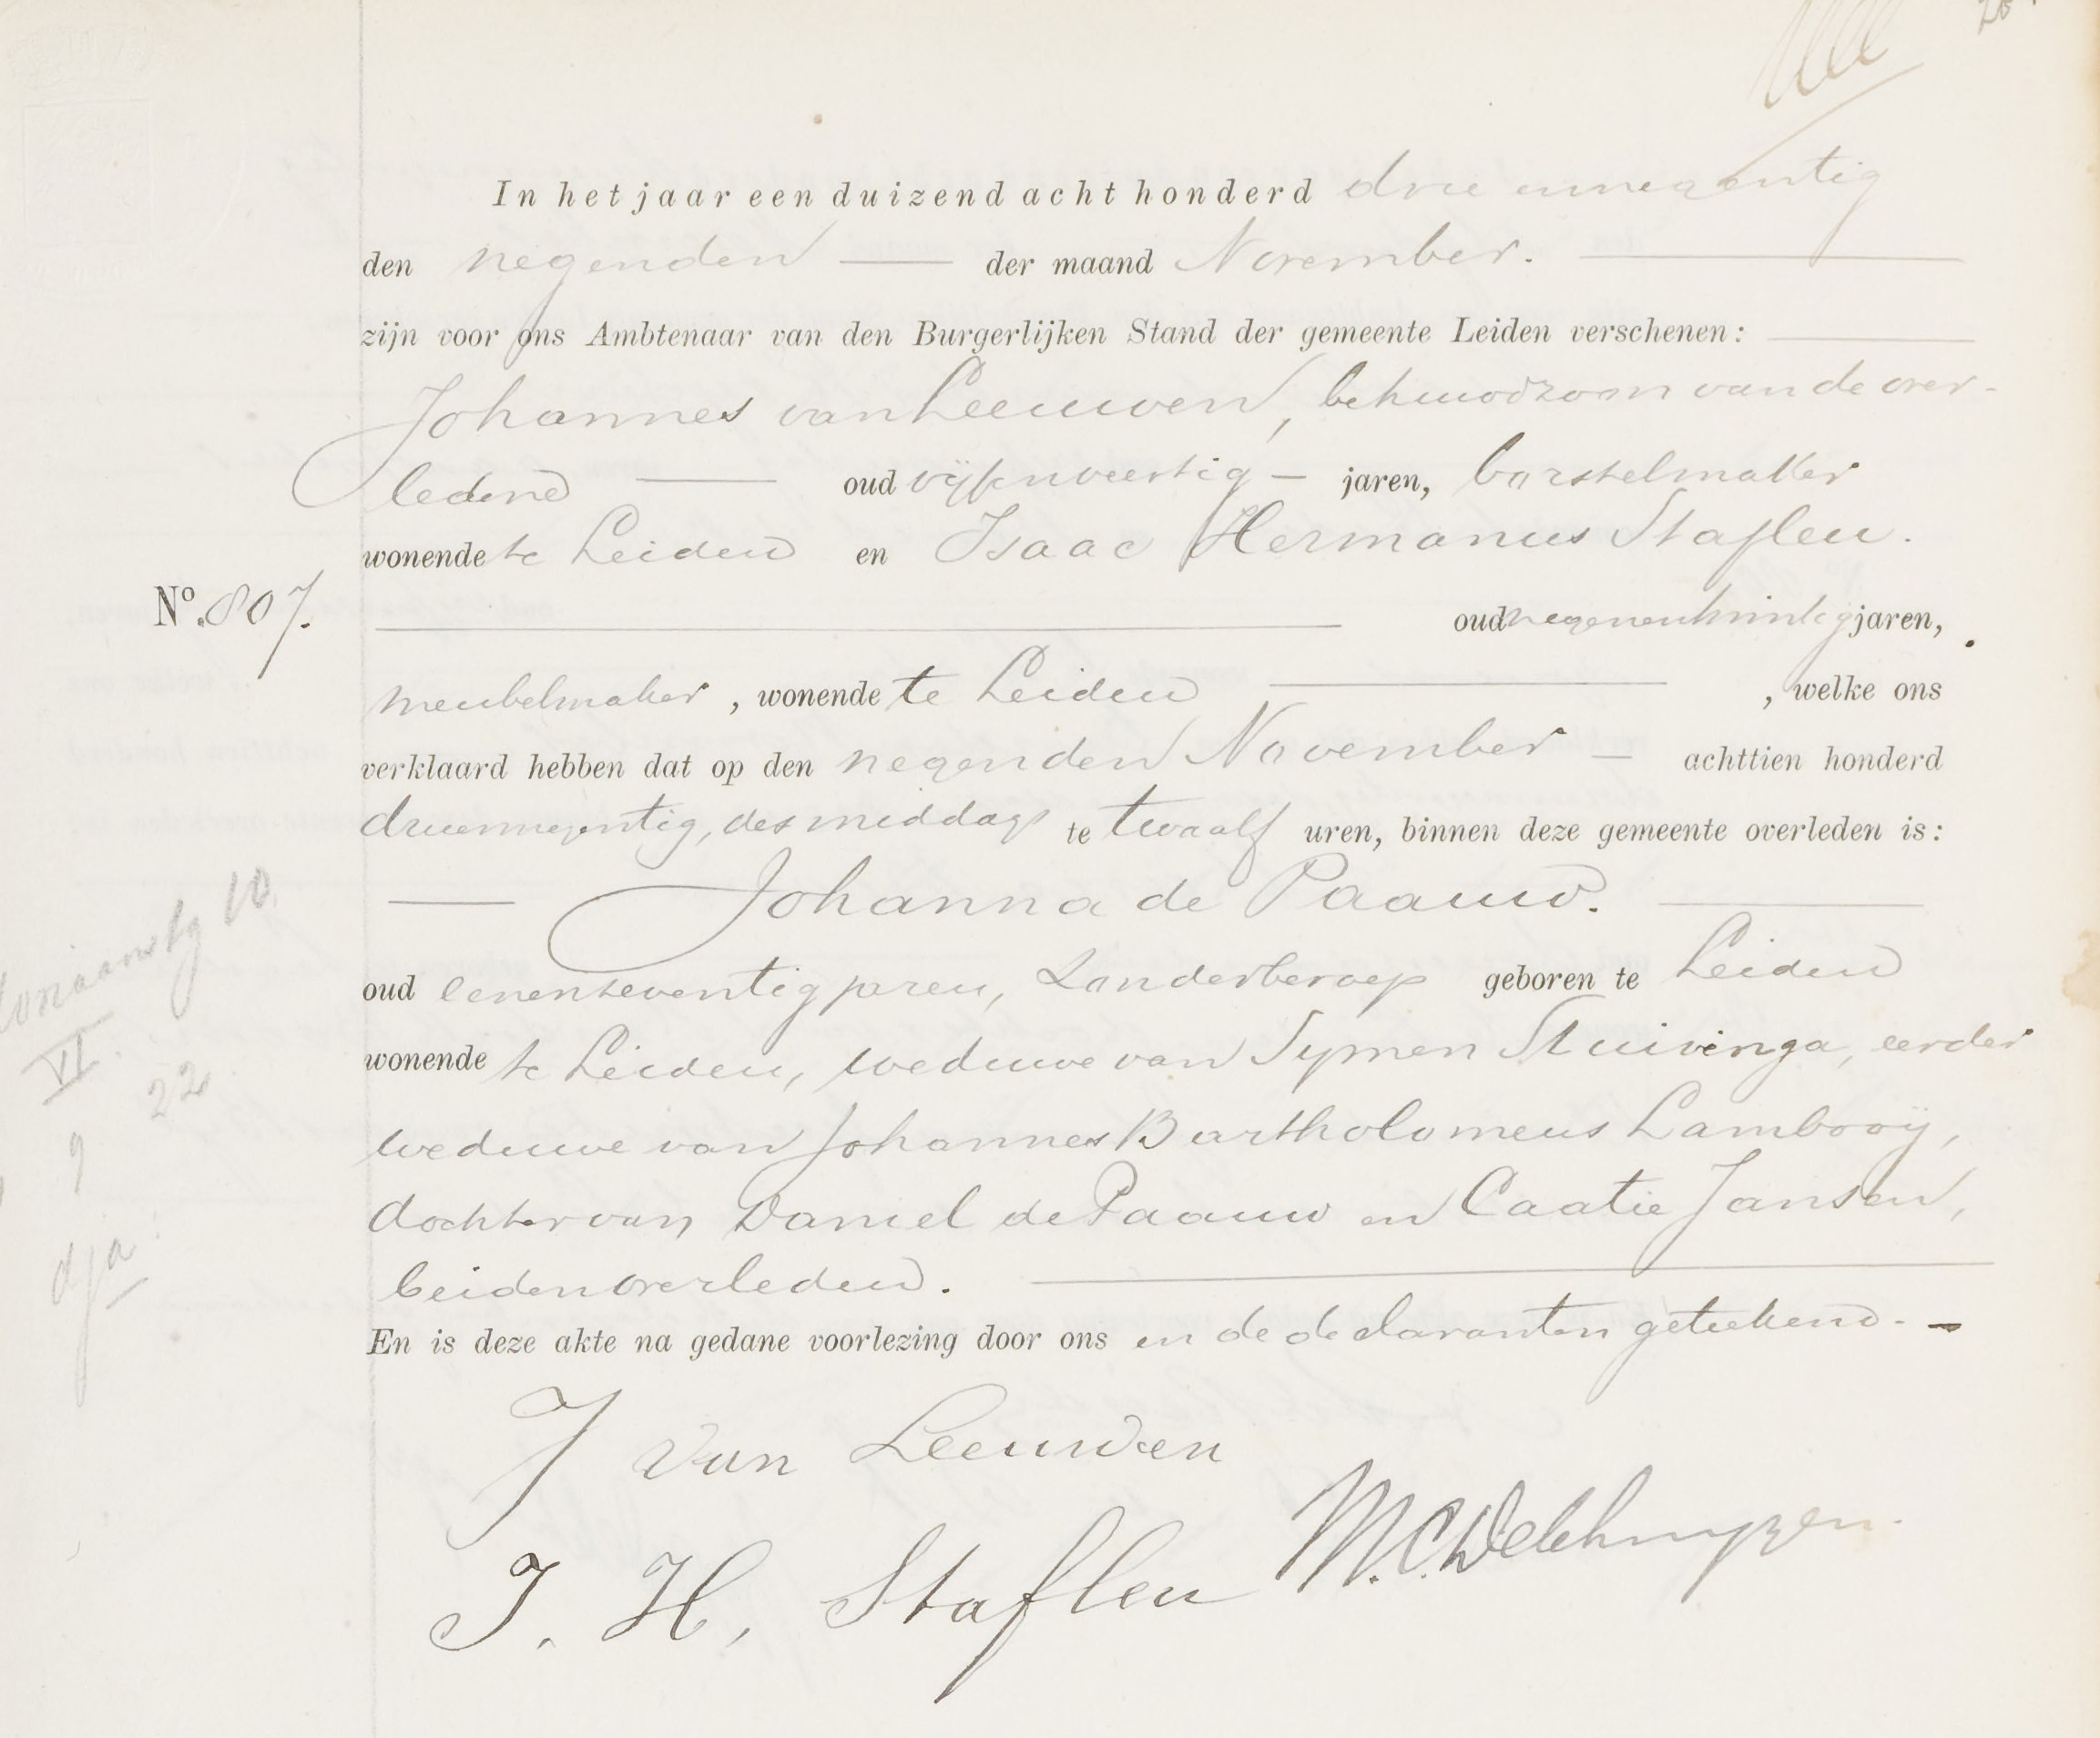 In het jaar een duizend acht honderd drie ennegentig
den negenden der maand November.
zijn voor ons Ambtenaar van den Burgerlijken Stand der gemeente Leiden verschenen:
Johannes van Leeuwen, behuwdzoon van de over-
ledene oud vijfenveertig jaren, borstelmaker
wonende te Leiden en Isaac Hermanus Stafleu.
No. 807. oud negenentwintig jaren,
meubelmaker, wonende te Leiden, welke ons
verklaard hebben dat op den negenden November achttien honderd
drieennegentig, des middags te twaalf uren, binnen deze gemeente overleden is:
Johanna de Paauw.
oud eenenzeventig jaren, zonder beroep geboren te Leiden
wonende te Leiden, weduwe van Symen Stuivinga, eerder
weduwe van Johannes Bartholomeus Lambooij,
dochter van Daniel de Paauw en Caatie Jansen,
beiden overleden.
En is deze akte na gedane voorlezing door ons en de declaranten geteekend.
J van Leeuwen
J. H. Stafleu
10
VI
22
9